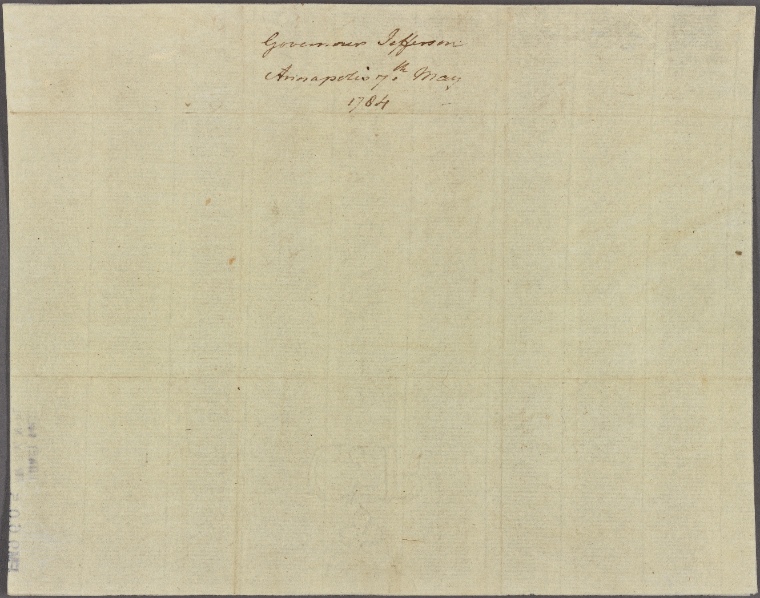 Governour Jefferson
Annapolis 7.th May
1784